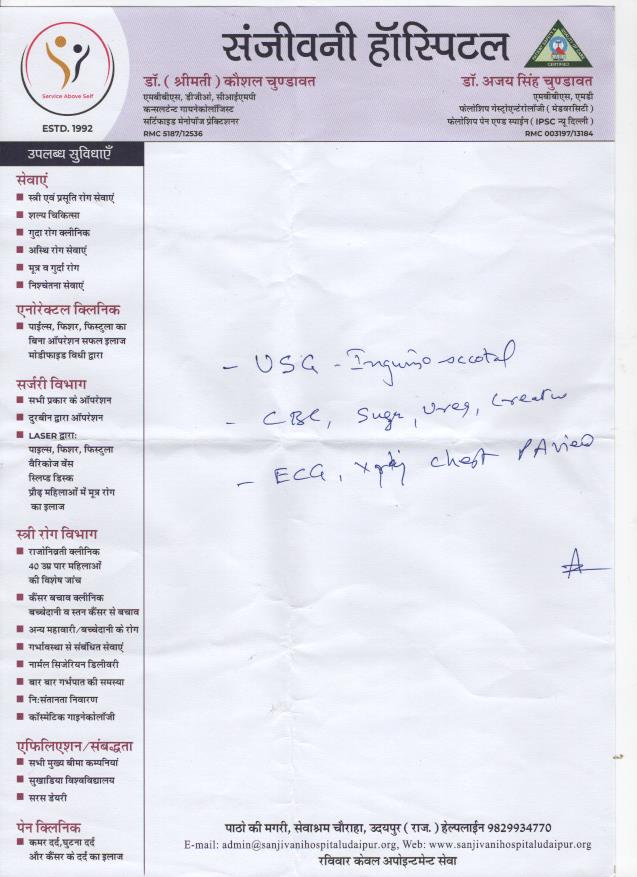 Service Above Self
ESTD. 1992
संजीवनी हॉस्पिटल
CERTIFIED
डॉ. ( श्रीमती ) कौशल चुण्डावत
एमबीबीएस, डीजीओ, सीआईएमपी
कन्सलटेन्ट गायनेकोलॉजिस्ट
सर्टिफाइड मेनोपॉज प्रेक्टिशनर
RMC 5187/12536
डॉ. अजय सिंह चुण्डावत
एमबीबीएस, एमडी
फेलोशिप गेस्ट्रोएन्टेरोलॉजी ( मेडवरसिटी )
फेलोशिप पेन एण्ड स्पाईन ( IPSC न्यू दिल्ली )
RMC 003197/13184
उपलब्ध सुविधाएँ
सेवाएं
स्त्री एवं प्रसूति रोग सेवाएं
शल्य चिकित्सा
गुदा रोग क्लीनिक
अस्थि रोग सेवाएं
मूत्र व गुर्दा रोग
निश्चेतना सेवाएं
एनोरेक्टल क्लिनिक
पाईल्स, फिशर, फिस्टुला का
बिना ऑपरेशन सफल इलाज
मोडीफाइड विधी द्वारा
सर्जरी विभाग
सभी प्रकार के ऑपरेशन
दुरबीन द्वारा ऑपरेशन
LASER द्वारा:
पाइल्स, फिशर, फिस्टुला
वैरिकोज वेंस
स्लिप्ड डिस्क
प्रौढ़ महिलाओं में मूत्र रोग
का इलाज
स्त्री रोग विभाग
राजोनिव्रती क्लीनिक
40 उम्र पार महिलाओं
की विशेष जांच
कैंसर बचाव क्लीनिक
बच्चेदानी व स्तन कैंसर से बचाव
अन्य महावारी/बच्चेदानी के रोग
गर्भावस्था से संबंधित सेवाएं
नार्मल सिजेरियन डिलीवरी
बार बार गर्भपात की समस्या
नि:संतानता निवारण
कॉस्मेटिक गाइनेकोलॉजी
एफिलिएशन/संबद्धता
सभी मुख्य बीमा कम्पनियां
सुखाडिया विश्वविद्यालय
सरस डेयरी
पेन क्लिनिक
कमर दर्द,घुटना दर्द
और कैंसर के दर्द का इलाज
- USG - Inguino-scrotal
- CBC, Sugar, Urea, Creatin
- ECG, Xray Chest PA view
पाठो की मगरी, सेवाश्रम चौराहा, उदयपुर ( राज. ) हेल्पलाईन 9829934770
E-mail: admin@sanjivanihospitaludaipur.org, Web: www.sanjivanihospitaludaipur.org
रविवार केवल अपोइन्टमेन्ट सेवा